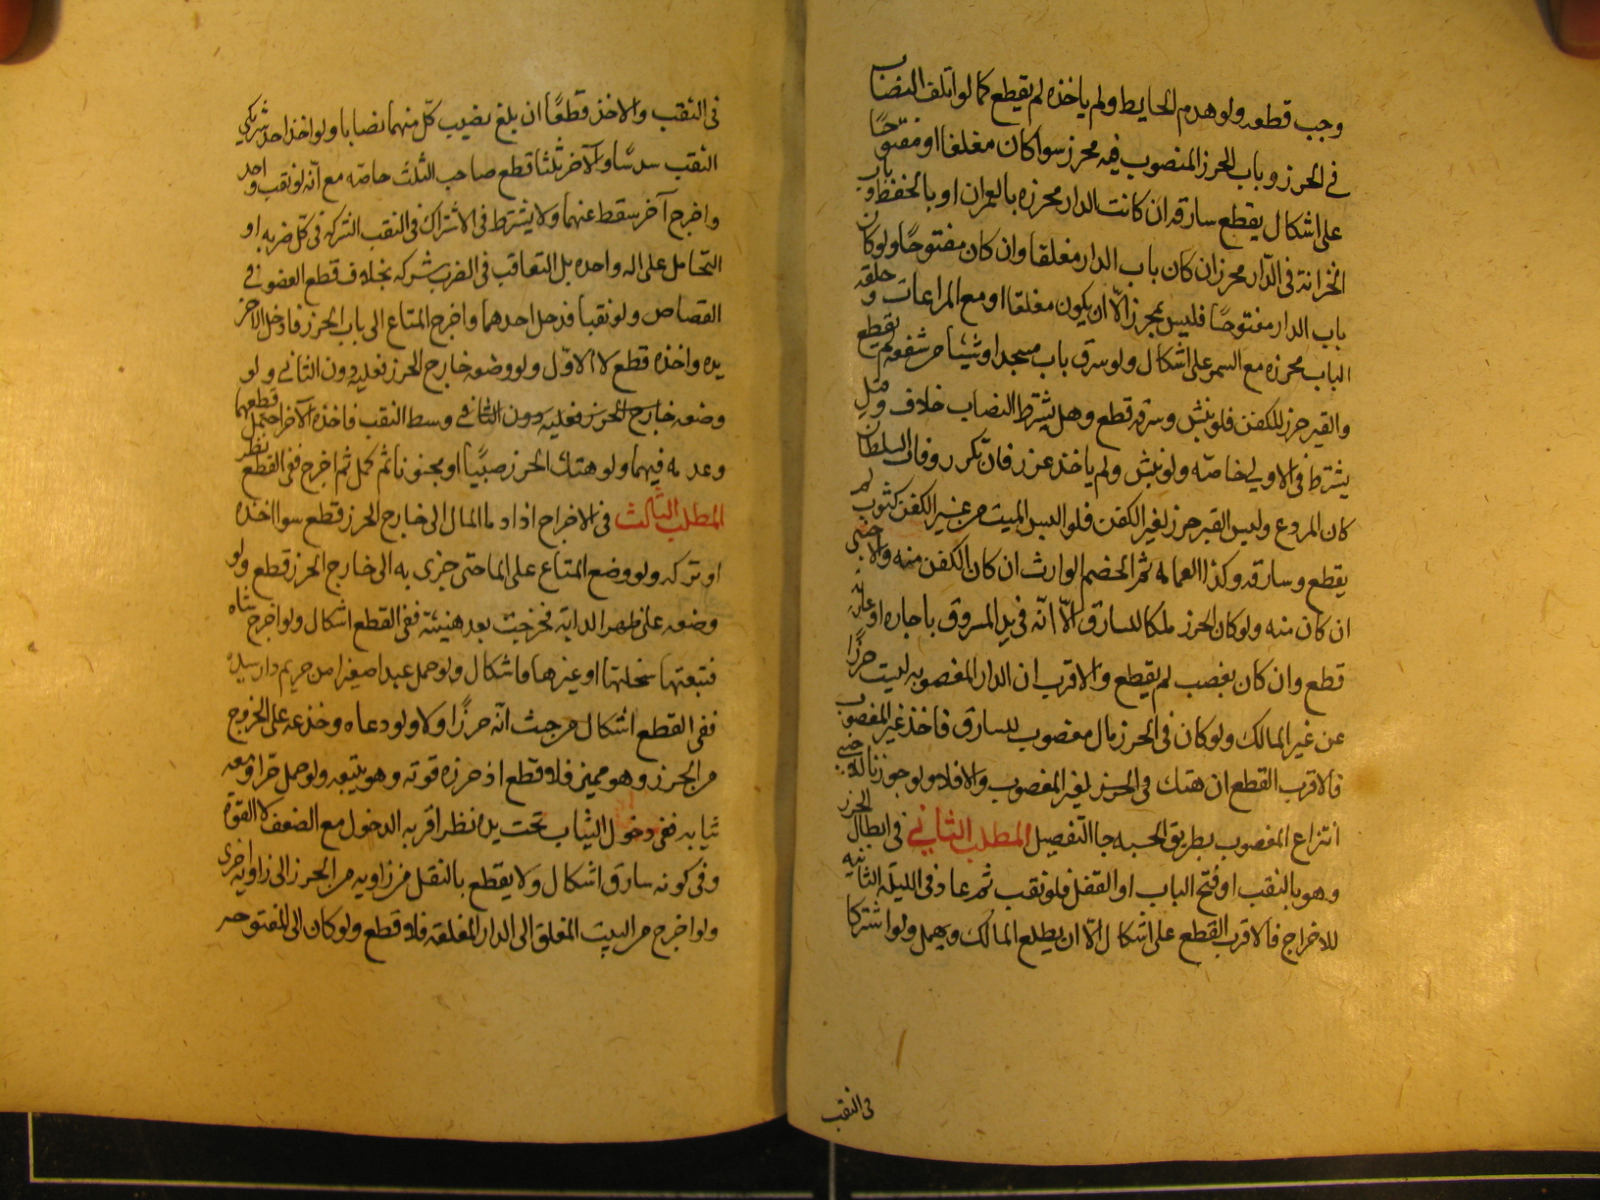 وجب قطعه ولو هدم الحايط ولم ياخذه لم يقطع كما لو اتلف النصاب
في الحرز وباب الحرز المنصوب فيه محرز سوا كان مغلقا او مفتوحًا
على اشكال يقطع سارقه ان كانت الدار محرزه بالعمران او بالحفظ وباب
الخزانة في الدّار محرز ان كان باب الدار مغلقا وان كان مفتوحًا ولو كان
باب الدار مفتوحًا فليس بمحرز الّا ان يكون مغلقا او مع المراعات وحلقه
الباب محرزه مع السمر على اشكال ولو سرق باب مسجد او شيئا من سقفه لم يقطع
والقبر حرز للكفن فلو نبش وسرقه قطع وهل يشترط النصاب خلاف وقيل
يشترط في الاولى خاصّه ولو نبش ولم ياخذ عزر فان تكرر وفات السلطان
كان المردع وليس القبر حرز لغير الكفن فلو البس الميت من غير الكفن كثوب لم
يقطع وسارقه وكذا العمامه ثم الخصم الوارث ان كان الكفن منه والاجنبى
ان كان منه ولو كان الحرز ملكا للسارق الّا انّه في يد المسروق باجاره او عاريه
قطع وان كان بغصب لم يقطع والاقرب ان الدار المغصوبه ليست حرزًا
عن غير المالك ولو كان في الحرز مال مغصوب للسارق فاخذ غير المغصوب
فالاقرب القطع ان هتك في الحرز لغير المغصوب والا فلا ولو جوزنا للاجنبى
انتزاع المغصوب بطريق الحسبه جا التفصيل المطلب الثاني في ابطال الحرز
وهو بالنقب او فتح الباب او القفل فلو نقب ثم عاد في الليلة الثانيه
للاخراج فالاقرب القطع على اشكال الّا ان يطلع المالك ويهمل ولو اشتركا
في النقب
في النقب والاخذ قطعًا ان بلغ نصيب كلّ منهما نصابا ولو اخذ احد شريكي
النقب سدسًا والآخر ثلثا قطع صاحب الثلث خاصّه مع انّه لو نقب واحد
واخرج آخر سقط عنهما ولا يشترط في الاشتراك في النقب الشركه في كلّ ضربه او
التحامل على اله واحده بل التعاقب في الضرب شركه بخلاف قطع العضو في
القصاص ولو نقبا فدخل احدهما واخرج المتاع الى باب الحرز فادخل الآخر
يده واخذه قطع لا الاوّل ولو وضعه خارج الحرز فعليه دون الثاني ولو
وضعه خارج الحرز فعليه دون الثاني وسط النقب فاخذه الآخر احتمل قطعهما
وعدمه فيهما ولو هتك الحرز صبيًّا او مجنونا ثم كمل ثم اخرج ففي القطع نظر
المطلب الثالث في الاخراج اذا رما المال الى خارج الحرز قطع سوا اخذه
او تركه ولو وضع المتاع على الما حتى جرى به الى خارج الحرز قطع ولو
وضعه على ظهر الدابه فخرجت بعد هنيئة ففي القطع اشكال ولو اخرج شاه
فتبعتها سخلتها او غيرها فاشكال ولو حمل عبدا صغيرا من حريم دار سيده
ففي القطع اشكال من حيث انّه حرزًا ولا ولو دعاه وخدعه على الخروج
من الحرز وهو مميز فلا قطع اذ حرزه قوته وهو يتبعه ولو حمل حرّا ومعه
ثيابه ففي دخول الثياب تحت يده نظر اقربه الدخول مع الضعف لا القوّة
وفي كونه سارق اشكال ولا يقطع بالنقل من زاويه من الحرز الى زاويه اخرى
ولو اخرج من البيت المغلق الى الدار المغلقه فلا قطع ولو كان الى المفتوحه